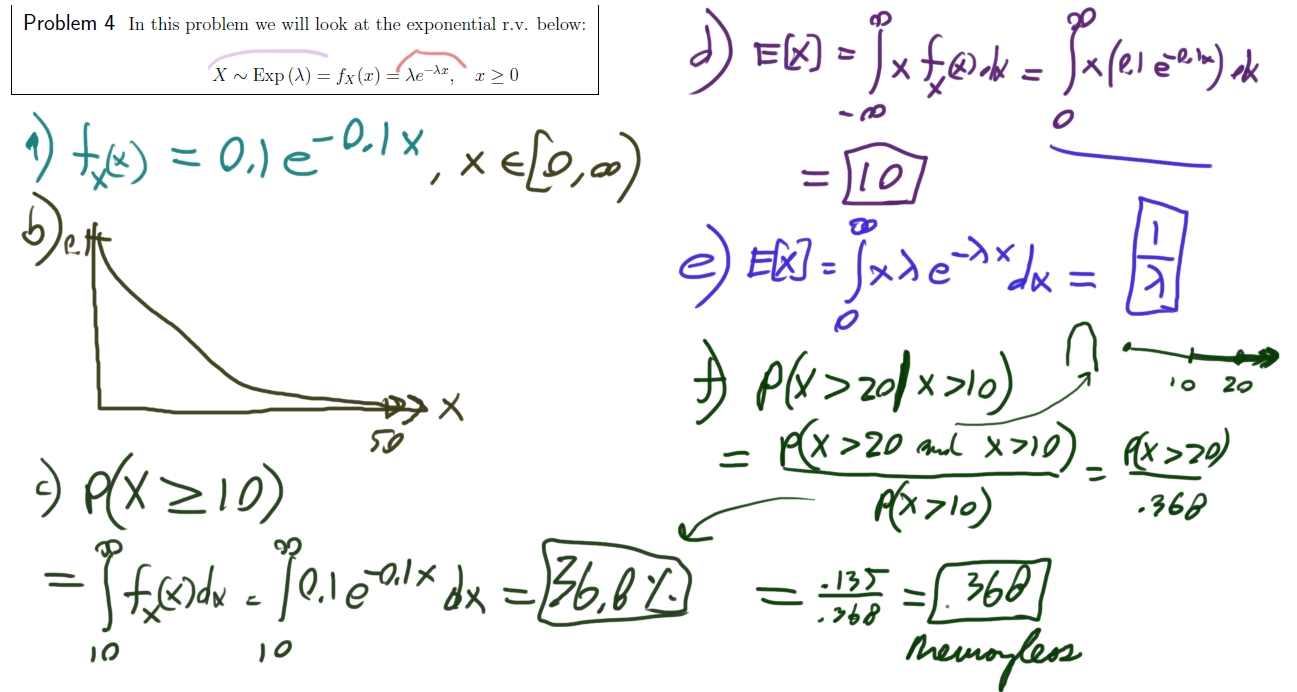 Problem 4 In this problem we will look at the exponential r.v. below:
X ∼ Exp (λ) = f_X(x) = λe^{−λx}, x ≥ 0
a) f_x(x) = 0.1 e^{−0.1x}, x ∈ [0, ∞)
b)
0.1
X
50
c) P(X ≥ 10)
= ∫_{10}^{∞} f_x(x) dx = ∫_{10}^{∞} 0.1 e^{−0.1x} dx = 36.8%
d) E[X] = ∫_{−∞}^{∞} x f_x(x) dx = ∫_{0}^{∞} x (0.1 e^{−0.1x}) dx
= 10
e) E[X] = ∫_{0}^{∞} x λ e^{−λx} dx = 1/λ
f) P(X > 20 | X > 10)
∩
10 20
= P(X > 20 and X > 10) / P(X > 10) = P(X > 20) / .368
= .135 / .368 = .368
Memoryless